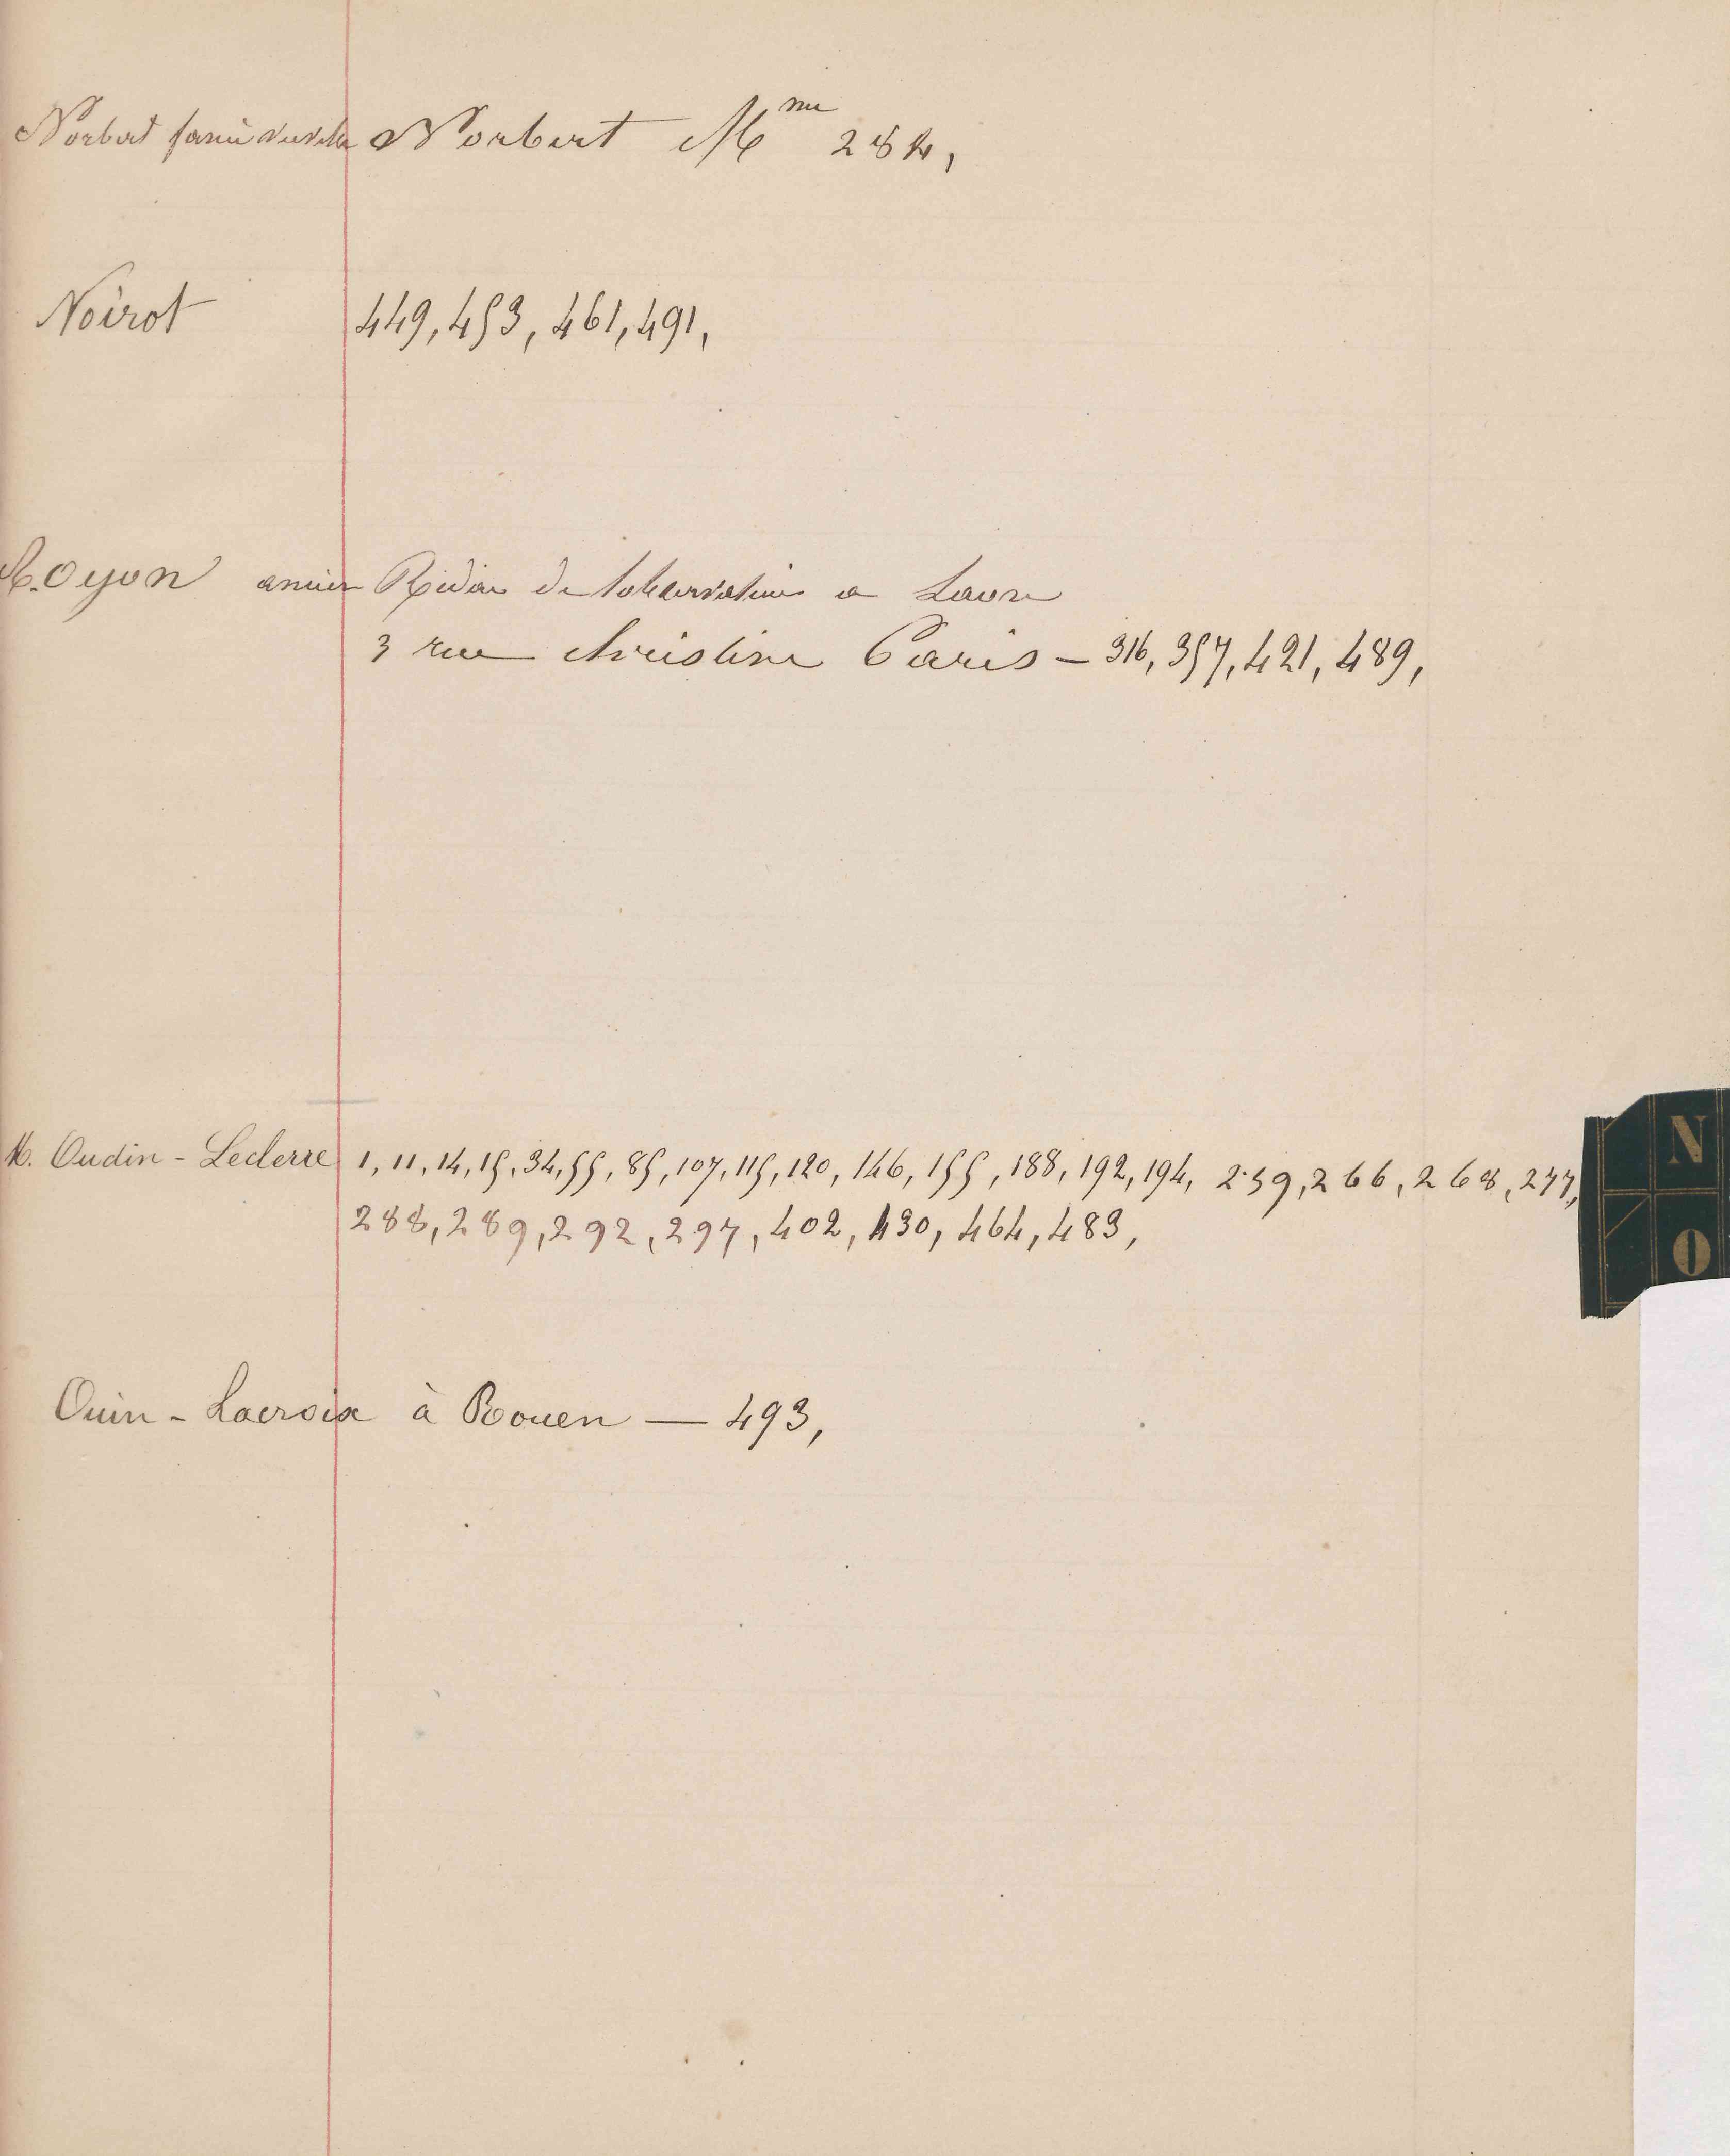 Norbert Norbert M^me 284,
Noirot 449, 453, 461, 491,
M. Oyon ancien a Laon
3 rue Christine Paris – 316, 357, 421, 489,
M. Oudin - Leclerre 1, 11, 14, 15, 34, 55, 85, 107, 115, 120, 146, 155, 188, 192, 194, 259, 266, 268, 277,
288, 289, 292, 297, 402, 430, 464, 483,
Ouin - Lacroix à Rouen — 493,
N
O